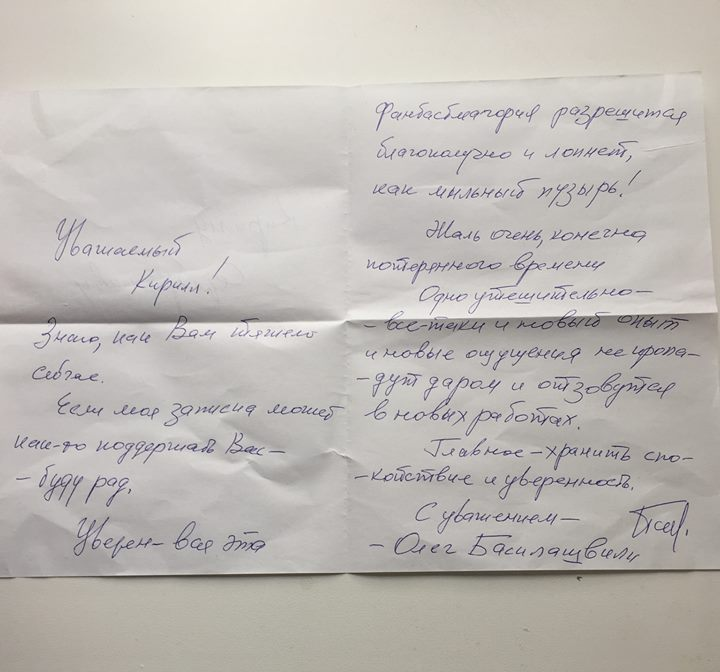 Уважаемый
Кирилл!
Знаю, как Вам тяжело
сейчас.
Если моя записка может
как-то поддержать Вас-
- буду рад.
Уверен - вся эта
фантасмагория разрешится
благополучно и лопнет,
как мыльный пузырь!
Жаль очень, конечно
потерянного времени
Одно утешительно-
- все-таки и новый опыт
и новые ощущения не пропа-
- дут даром и отзовутся
в новых работах.
Главное - хранить спо-
- койствие и уверенность.
С уважением -
- Олег Басилашвили